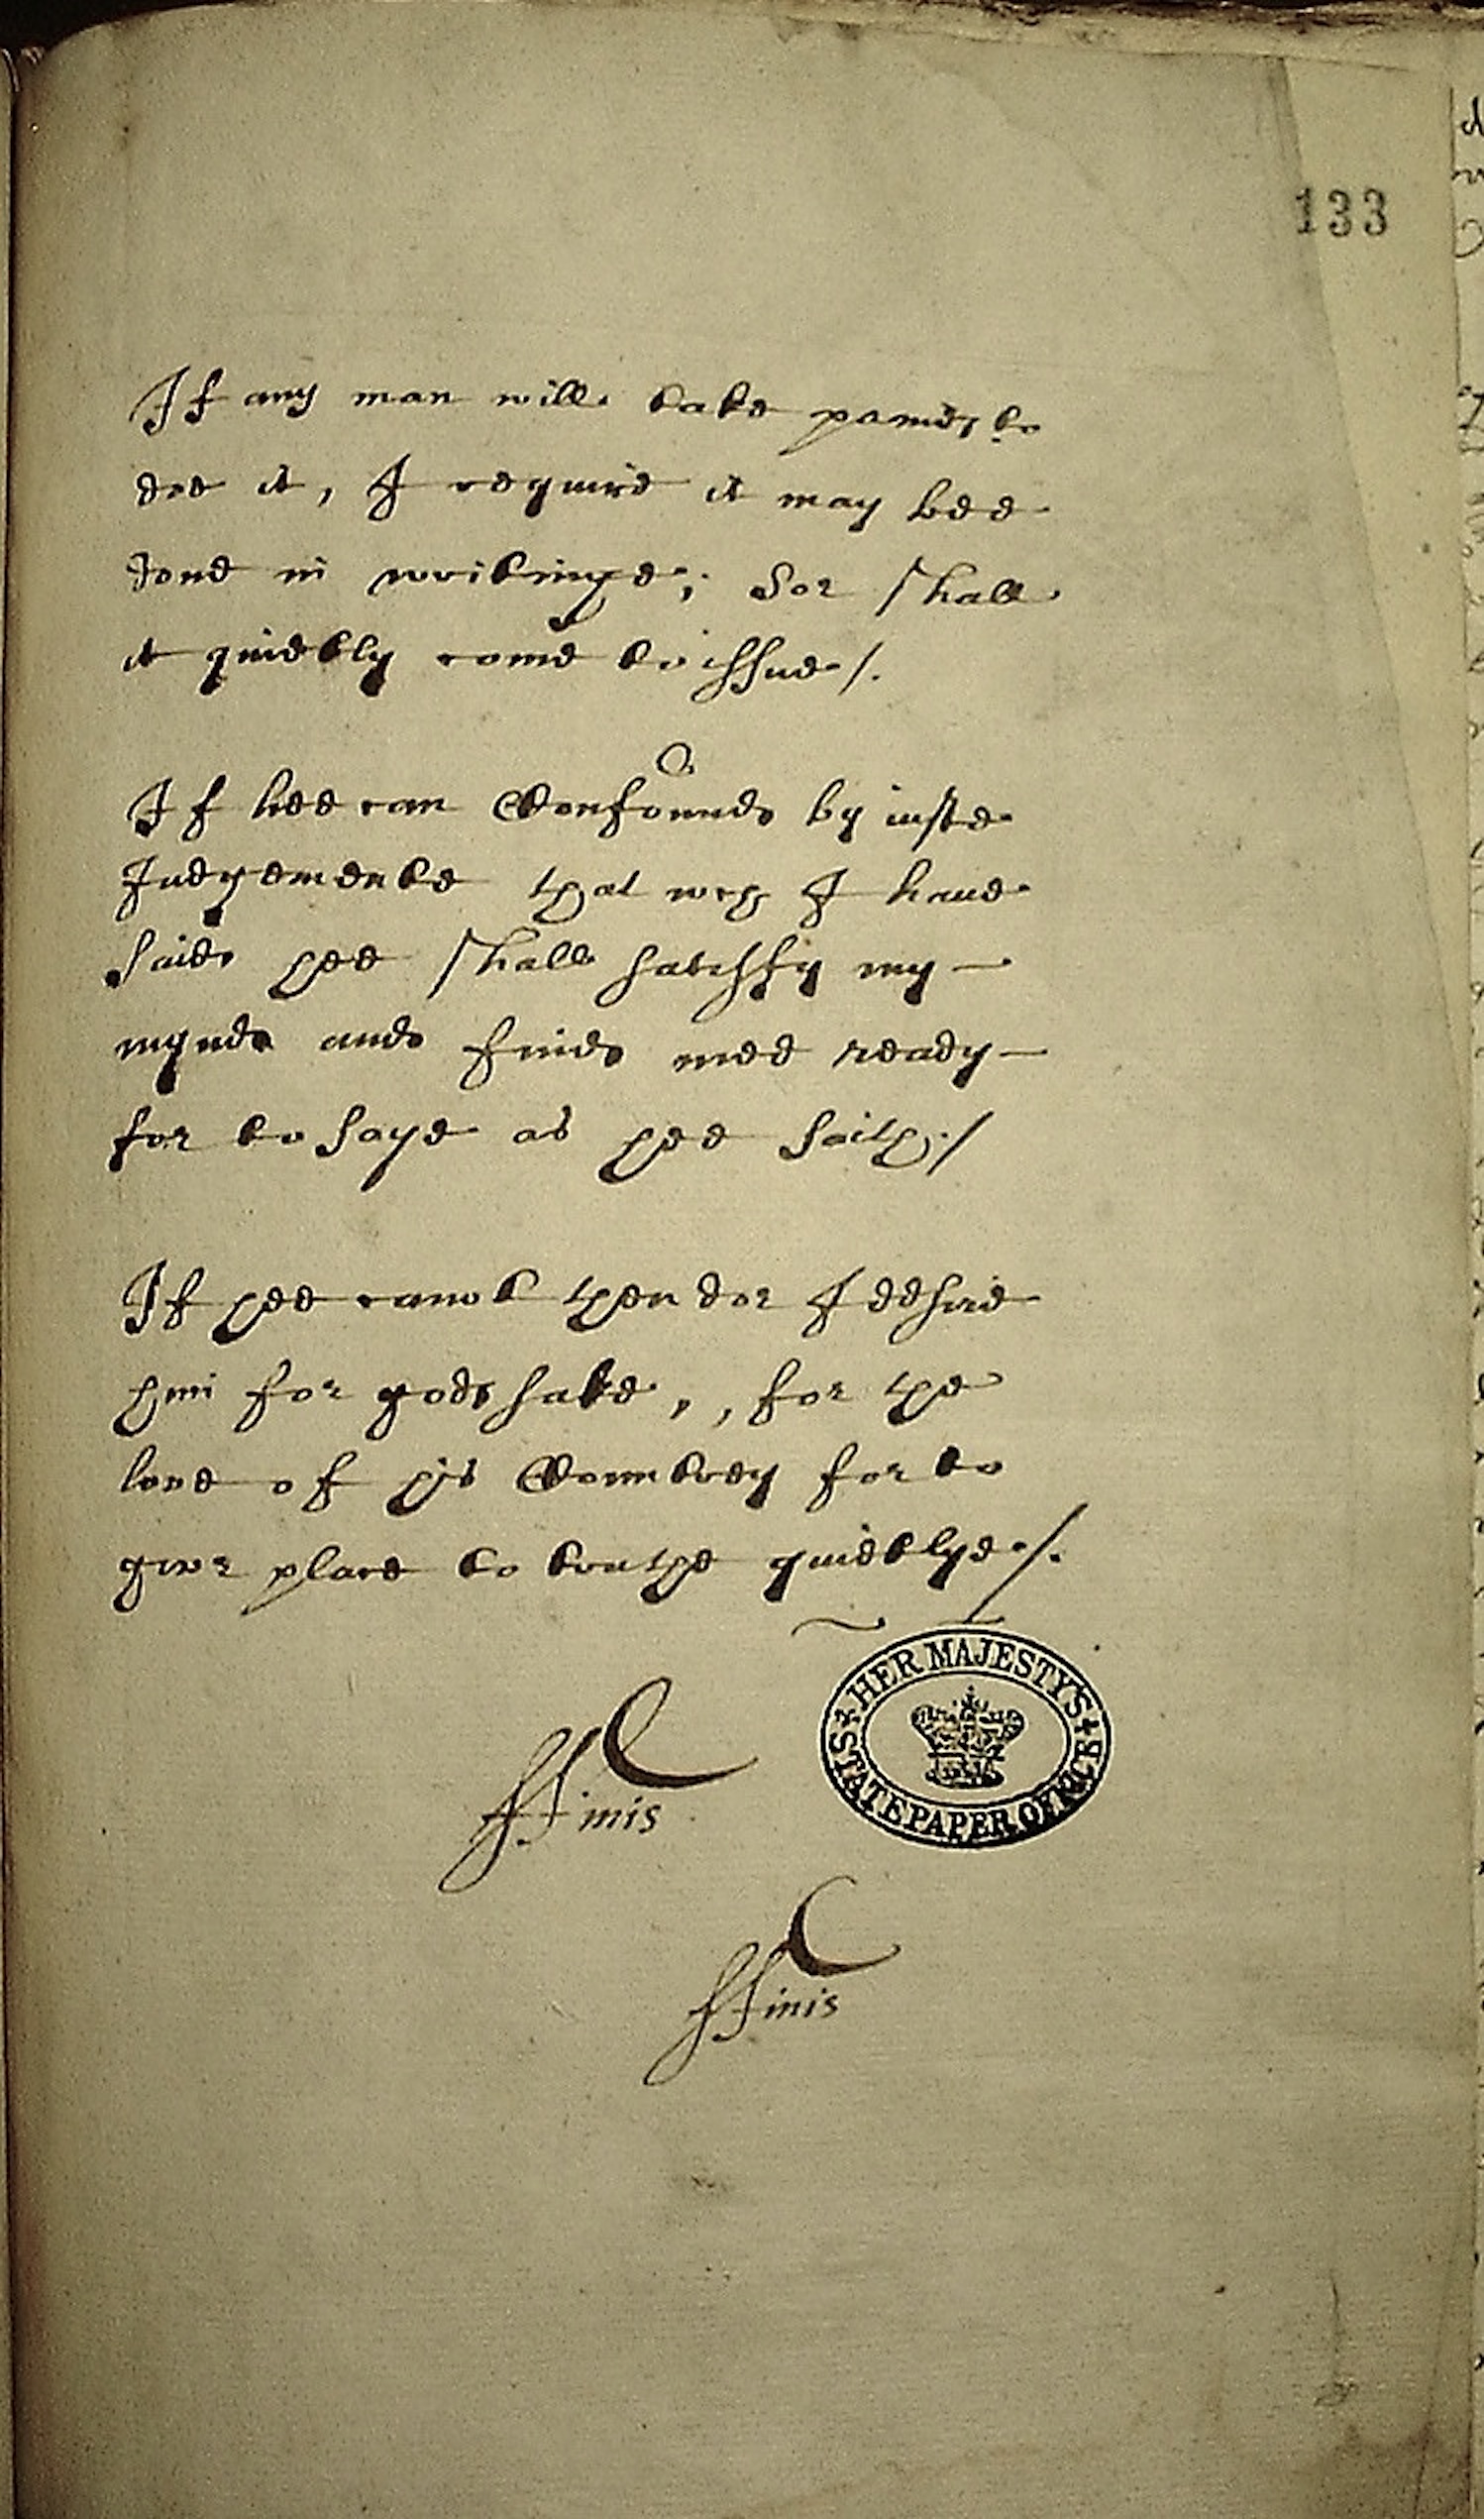 133
If any man will take paines to
doe it, I require it may bee
done in writinge; Soe shall
it quietly come to issue /.
If hee can Confounde by iuste
Judgemente that wch I haue
saide hee shall satisfy my —
mynde and finde mee ready —
for to saye as hee saith ./
If hee canot then doe I desire
him for gods sake, , for the
loue of his Countrey for to
giue place to truthe quietlye ./.
ffinis
HER MAJESTY'S
STATE PAPER OFFICE
ffinis